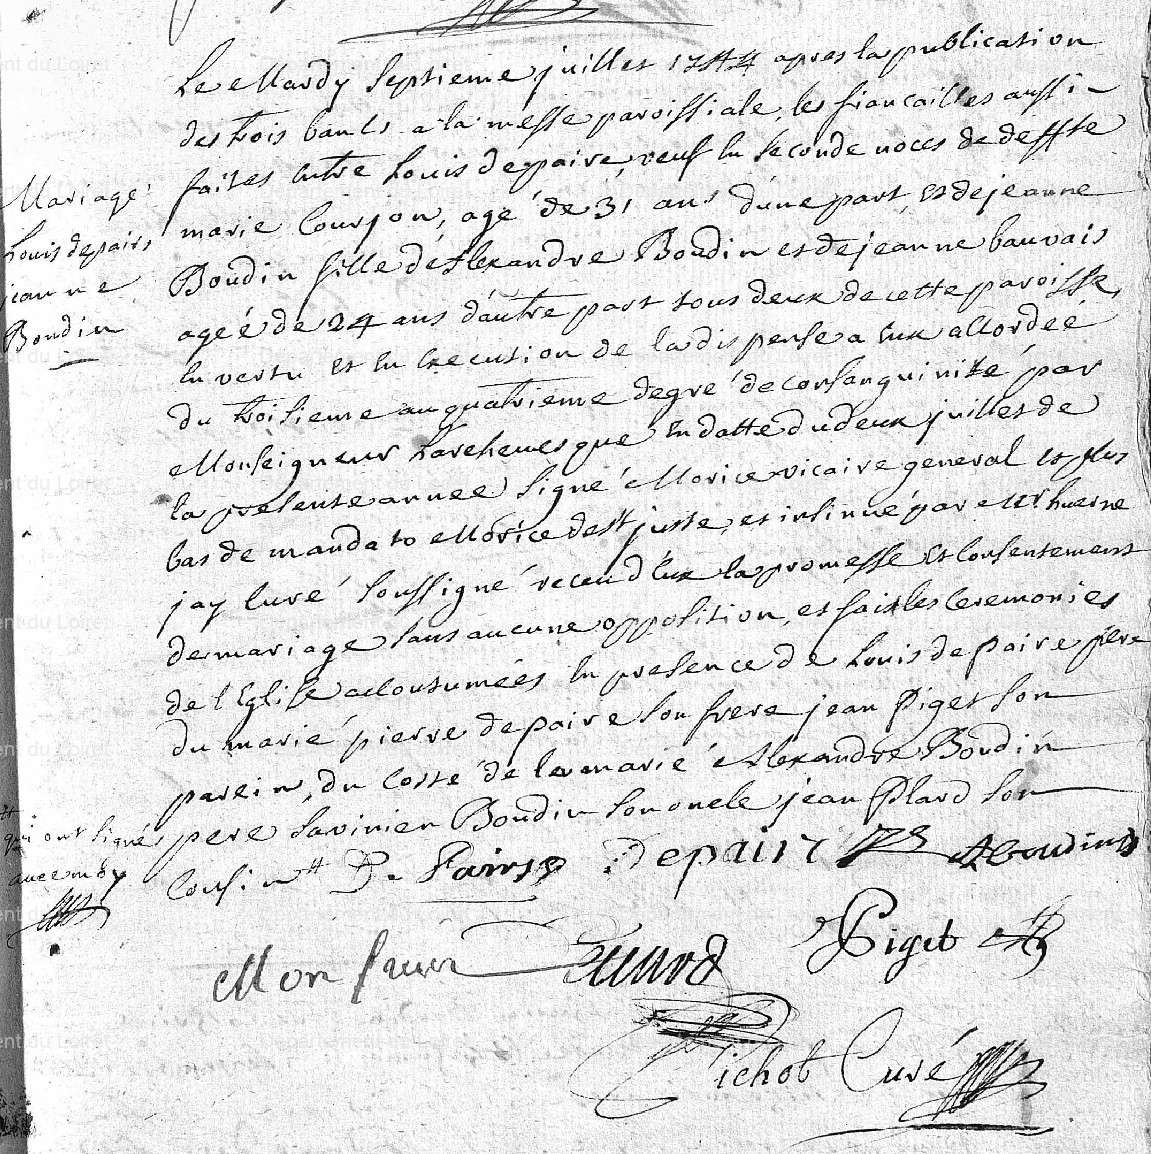 Mariage
Louis depaire
jeanne
Boudin
Le Mardy septieme juillet 1744 apres la publication
des trois bants a la messe paroissiale, les fiancailles aussi
faites entre Louis depaire, veuf en seconde noces de deffte
marie Courjon, agé de 31 ans d'une part, et de jeanne
Boudin fille d'Alexandre Boudin et de jeanne bauvais
ageé de 24 ans d'autre part tous deux de cette paroisse,
en vertu et en execution de la dispense a eux accordeé
du troisieme au quatrieme degré de consanguinité par
Monseigneur Larcheuesque en datte du deux juillet de
la presente anneé signé Morice vicaire general et plus
bas de mandato Morice de st juste, et insinué par Mr huerne
jay Curé soussigné receu d'eux la promesse et consentement
de mariage sans aucune opposition, et fait les Ceremonies
de l'Eglise accoutumeés en presence de Louis depaire pere
du marié pierre depaire son frere jean Piget son
parein, du costé de la marié Alexandre Boudin
pere Savinien Boudin son oncle jean Plard son
Cousin
qui ont signés
avec moy
depairs
aboudin
Piget
Pichot Curé